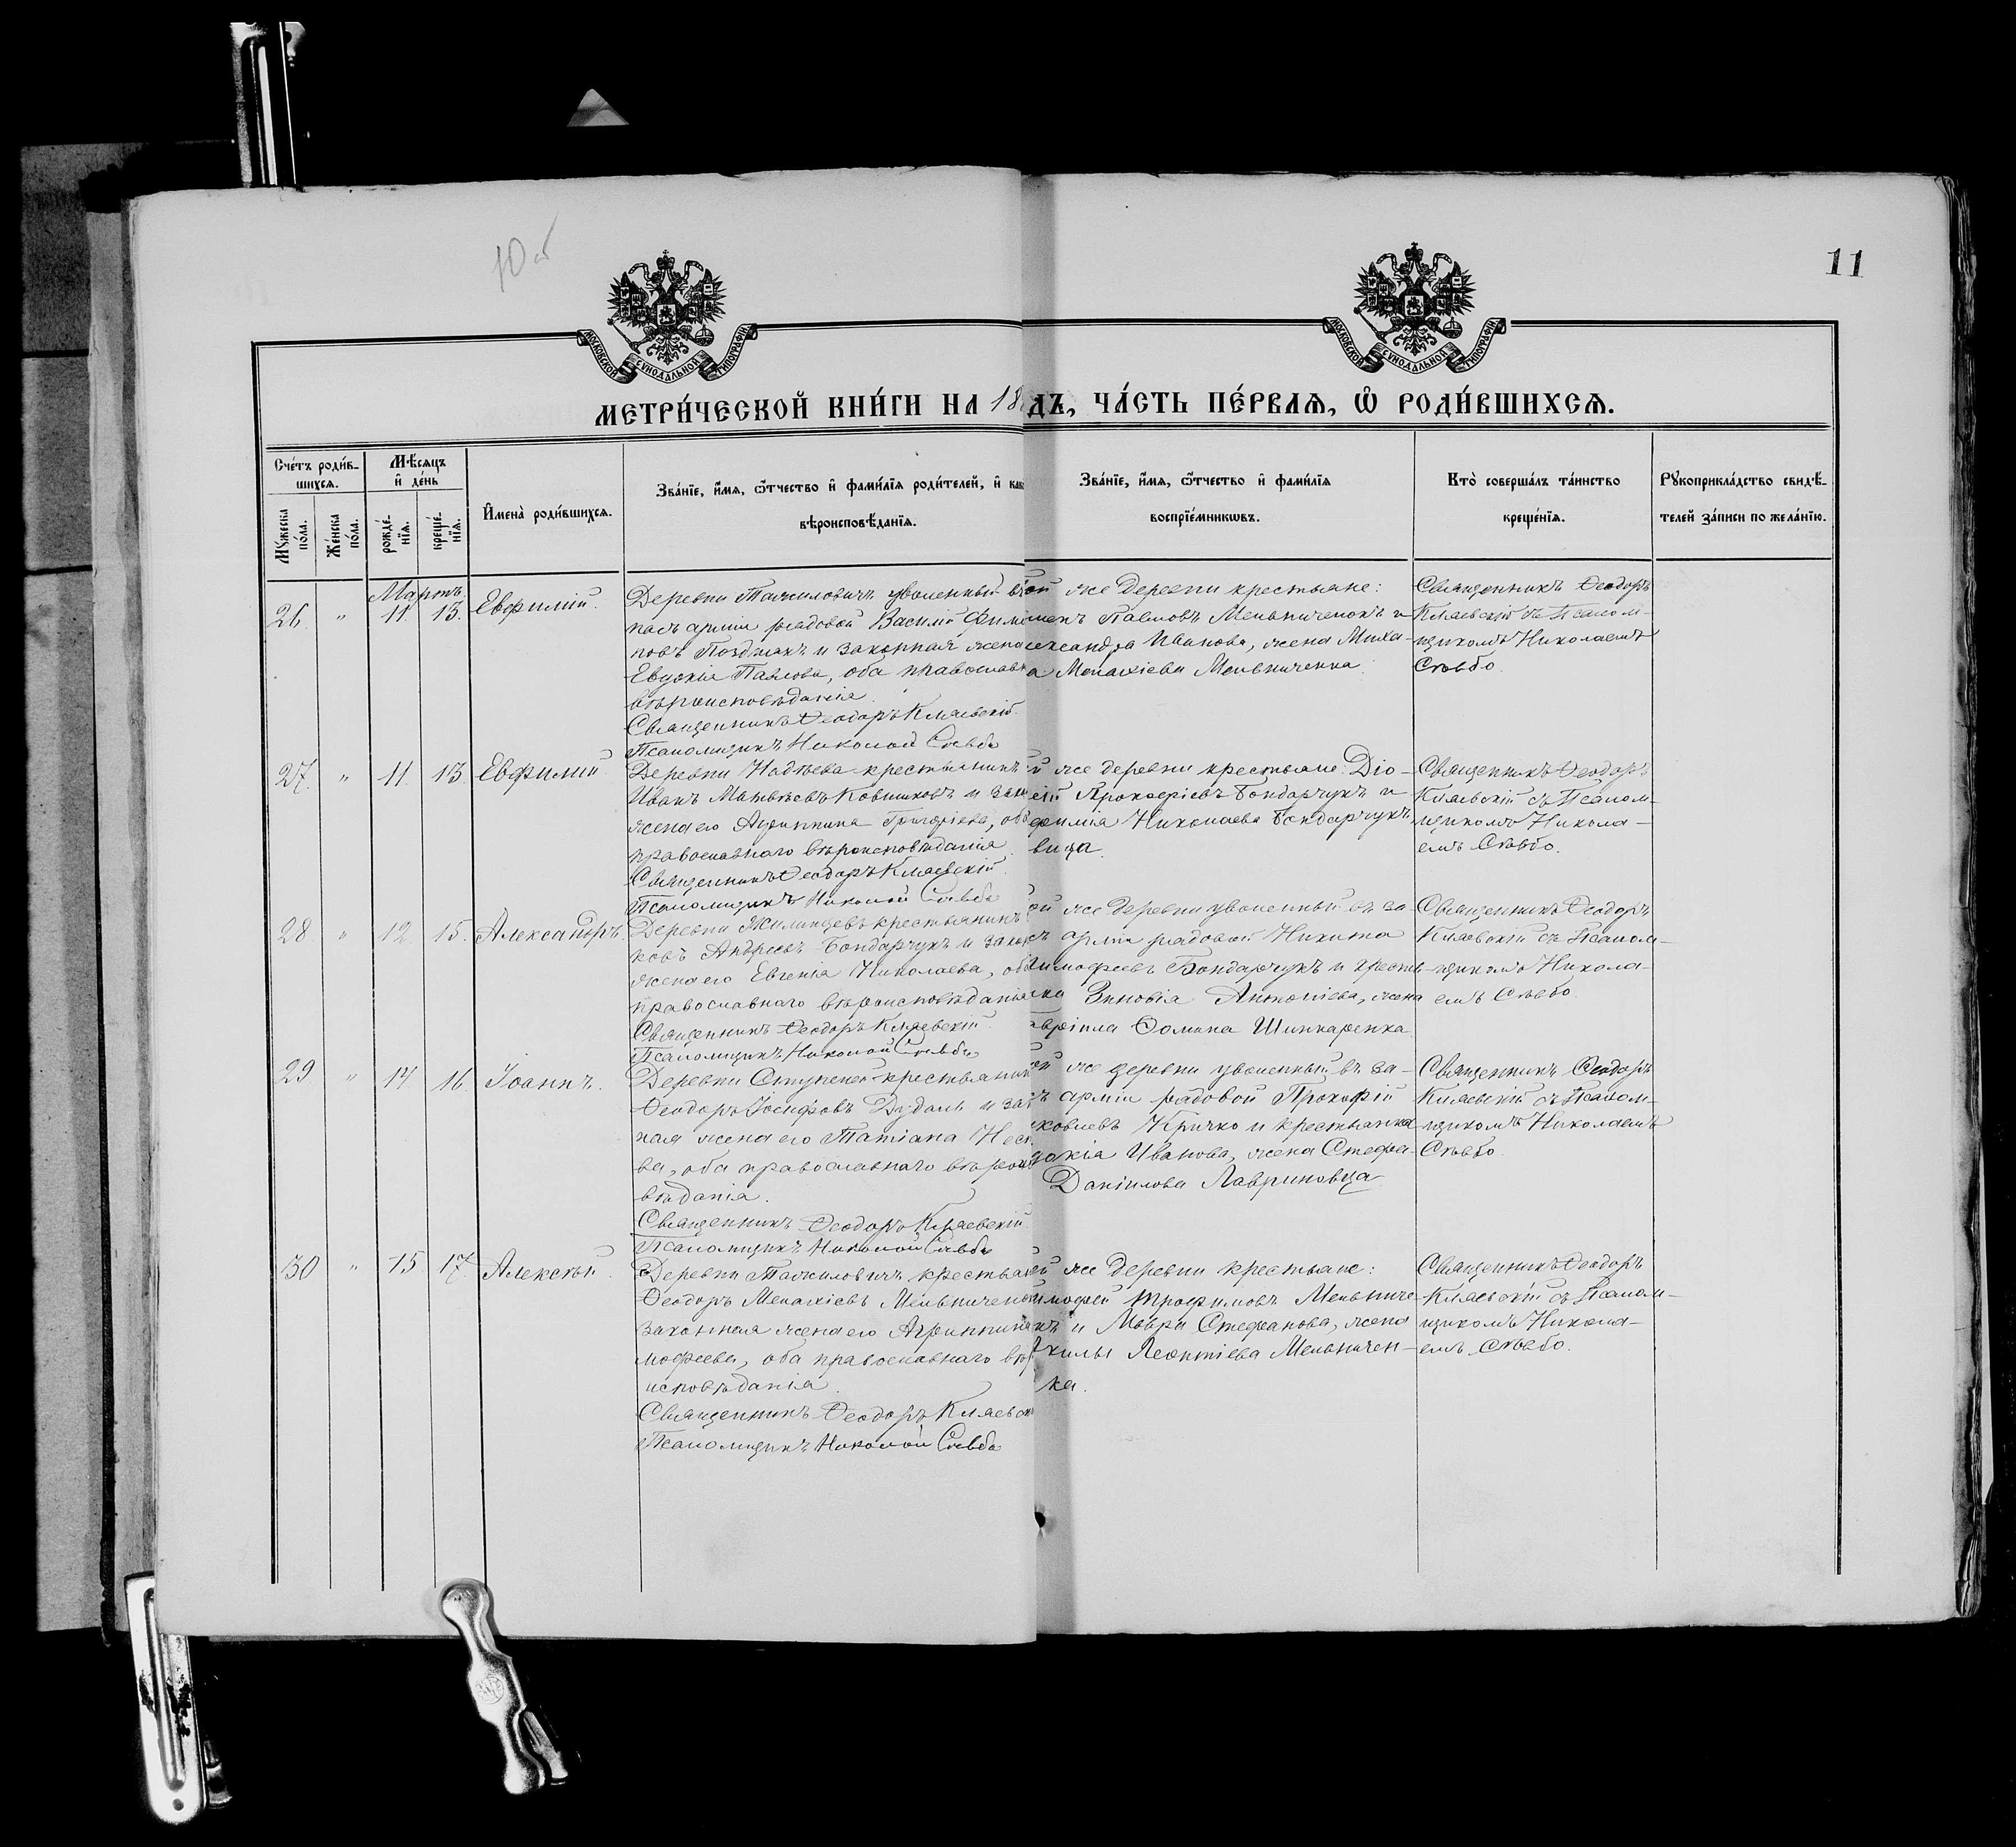 10 об
11
МОСКОВСКОЙ СУНОДАЛЬНОЙ ТИПОГРАФІИ
МОСКОВСКОЙ СУНОДАЛЬНОЙ ТИПОГРАФІИ
МЕТРИ́ЧЕСКОЙ КНИ́ГИ НА 18
ДЪ, ЧА́СТЬ ПЕ́РВАѦ, Ѡ РОДИ́ВШИХСѦ.
Сче́тъ роди́в-
шихсѧ.
Мꙋжеска по́ла.
Же́нска по́ла.
Мѣ́сѧцъ
и҆ де́нь
рожде́-
нїѧ.
креще́-
нїѧ.
И҆мена̀ роди́вшихсѧ.
Зва́нїе, и҆́мѧ, ѻ҆́тчество и҆ фами́лїѧ роди́телей, и҆ как
вѣроисповѣ́данїѧ.
Зва́нїе, и҆́мѧ, ѻ҆́тчество и҆ фами́лїѧ
воспрїе́мникѡвъ.
Кто̀ соверша́лъ та́инство
креще́нїѧ.
Рꙋкоприкла́дство свидѣ́-
телей за́писи по жела́нїю.
Мартъ
26. " 11. 13. Евфимій.
Деревни Тажиловичъ уволенный въ
пасъ арміи рядовой Василій
новъ и законная жена
Евдокія Павлова, оба православн
вѣроисповѣданія.
Священникъ Ѳеодоръ Кляевскій.
Псаломщикъ Николай
ой же деревни крестьяне:
Павловъ Мельниченокъ и
ександра Иванова, жена Миха-
а Мельниченка.
Священникъ Ѳеодоръ
Кляевскій съ Псалом-
щикомъ Николаемъ
27. " 11 13 Евфимій
Деревни крестьянинъ
Иванъ Матвѣевъ и зак
жена его Агриппина Григоріева, оба
православнаго вѣроисповѣданія.
Священникъ Ѳеодоръ Кляевскій.
Псаломщикъ Николай
й же деревни крестьяне: Діо-
сій Прокофіевъ Бондарчукъ и
фимія Николаева Бондарчукъ,
вица.
Священникъ Ѳеодоръ
Кляевскій съ Псалом-
щикомъ Никола-
емъ
28 " 12 15. Александръ.
Деревни Жилинцевъ крестьянинъ
ковъ Андреевъ Бондарчукъ и закон
жена его Евгенія Николаева, оба
православнаго вѣроисповѣданія
Священникъ Ѳеодоръ Кляевскій.
Псаломщикъ Николай
ой же деревни уволенный въ за-
съ арміи рядовой Никита
имофеевъ Бондарчукъ и крестьян-
ка Зиновія Антоніева, жена
авріила Ѳомина Шинкаренка
Священникъ Ѳеодоръ
Кляевскій съ Псалом-
щикомъ Никола-
емъ
29 " 14 16 Іоаннъ.
Деревни крестьянинъ
Ѳеодоръ Іосифовъ и зак
ная жена его Татіана
ва, оба православнаго вѣроис
вѣданія.
Священникъ Ѳеодоръ Кляевскій.
Псаломщикъ Николай
ой же деревни уволенный въ за-
съ арміи рядовой Прокофій
ковлевъ Кричко и крестьянка
докія Иванова, жена Стефа-
Даніилова Лавриновца
Священникъ Ѳеодоръ
Кляевскій съ Псалом-
щикомъ Николаемъ
30 " 15 17. Алексѣй.
Деревни Тажиловичъ крестьян
Ѳеодоръ
законная жена его Агриппина
мофеева, оба православнаго вѣро
исповѣданія.
Священникъ Ѳеодоръ Кляевскі
Псаломщикъ Николай
ой же деревни крестьяне:
имофей Трофимовъ Мельниче-
къ и Мавра Стефанова, жена
Леонтіева Мельничен-
ка.
Священникъ Ѳеодоръ
Кляевскій съ Псалом-
щикомъ Никола-
емъ